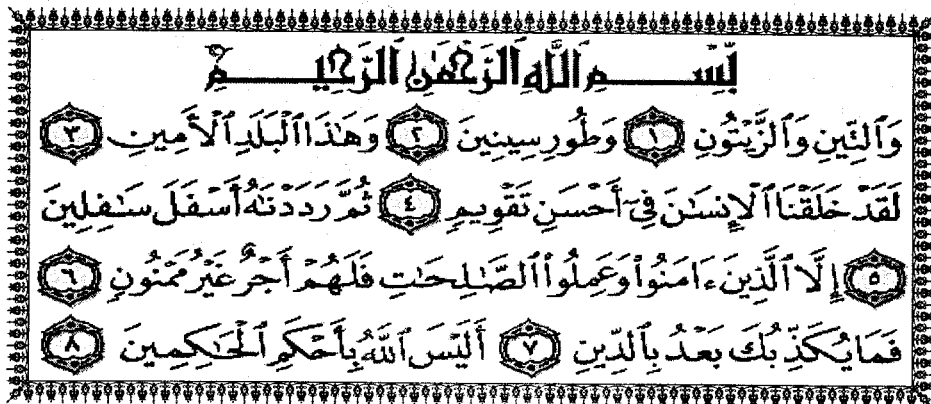 بِّسْمِ ٱللَّهِ ٱلرَّحْمَٰنِ ٱلرَّحِيمِ
وَٱلتِّينِ وَٱلزَّيْتُونِ ١ وَطُورِ سِينِينَ ٢ وَهَٰذَا ٱلْبَلَدِ ٱلْأَمِينِ ٣
لَقَدْ خَلَقْنَا ٱلْإِنسَٰنَ فِىٓ أَحْسَنِ تَقْوِيمٍ ٤ ثُمَّ رَدَدْنَٰهُ أَسْفَلَ سَٰفِلِينَ
٥ إِلَّا ٱلَّذِينَ ءَامَنُوا۟ وَعَمِلُوا۟ ٱلصَّٰلِحَٰتِ فَلَهُمْ أَجْرٌ غَيْرُ مَمْنُونٍ ٦
فَمَا يُكَذِّبُكَ بَعْدُ بِٱلدِّينِ ٧ أَلَيْسَ ٱللَّهُ بِأَحْكَمِ ٱلْحَٰكِمِينَ ٨